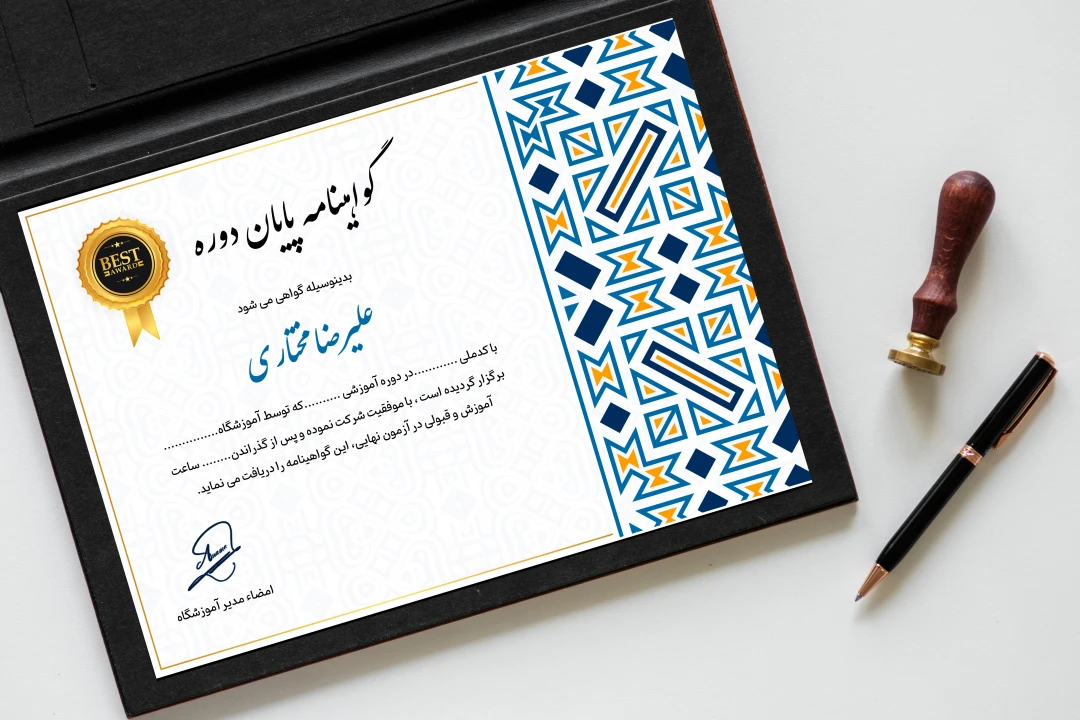 گواهینامه پایان دوره
BEST
AWARD
بدینوسیله گواهی می شود
علیرضا مختاری
با کدملی ............در دوره آموزشی ..........که توسط آموزشگاه...............
برگزار گردیده است ، با موفقیت شرکت نموده و پس از گذراندن........ ساعت
آموزش و قبولی در آزمون نهایی، این گواهینامه را دریافت می نماید.
امضاء مدیر آموزشگاه